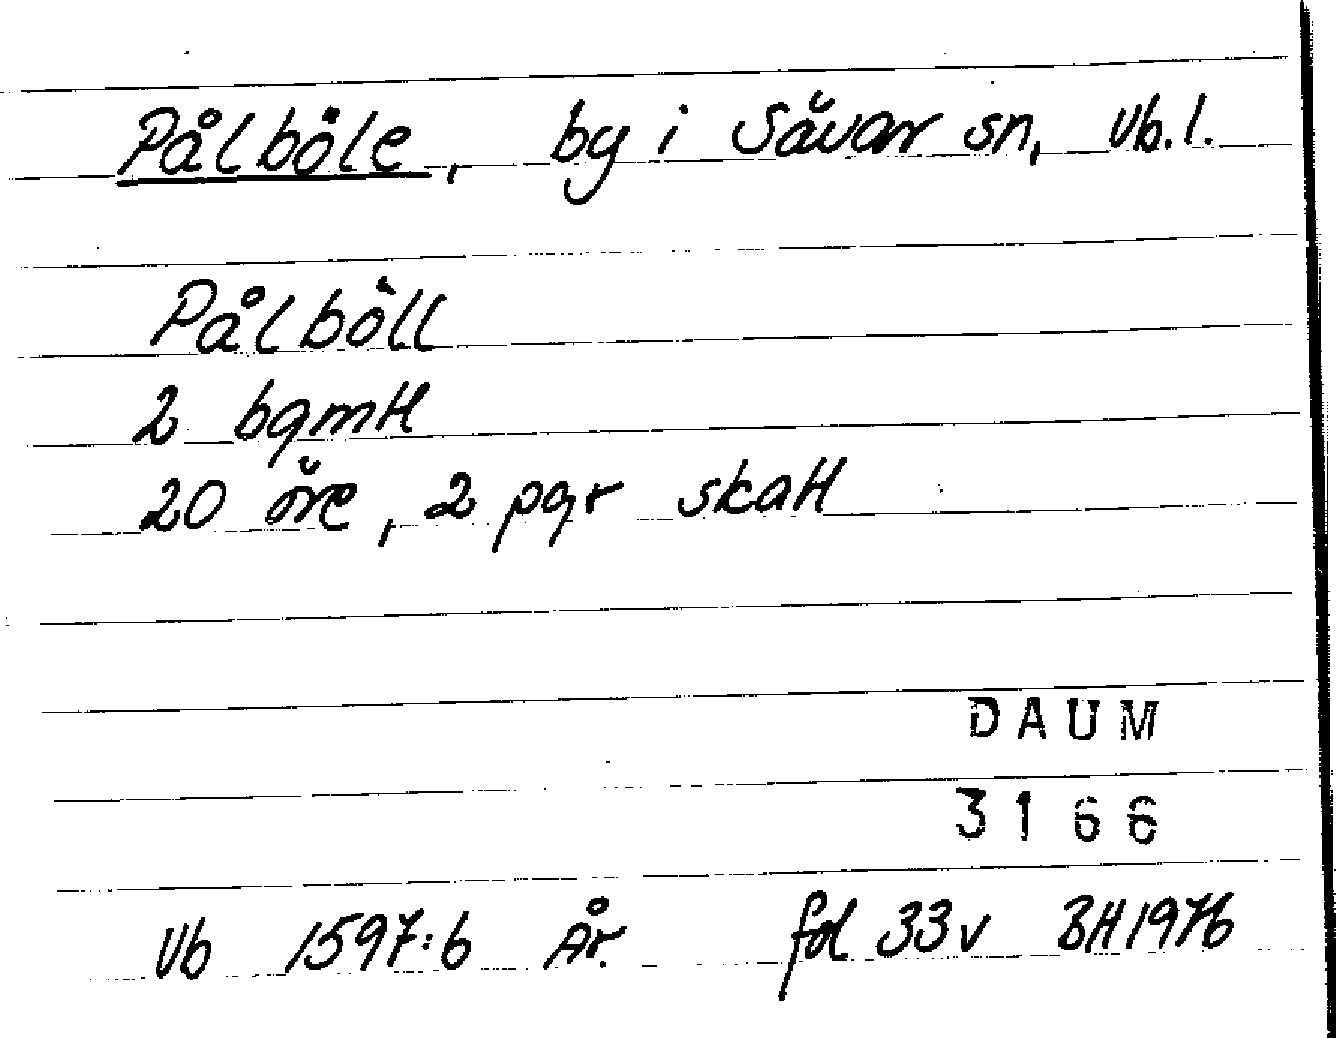 Pålböle, by i Sävar sn, Vb.l.
Pålböll
2 bgmtl
20 öre, 2 pgr skatt
DAUM
3166
Vb 1597:6 År. fol 33v BH1976